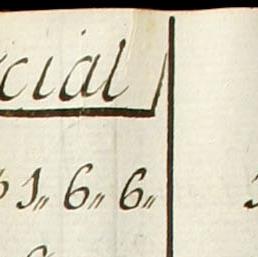 cial
1,, 6,, 6,,